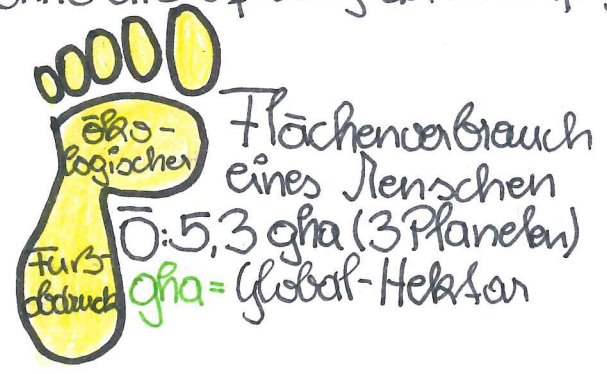 öko-
logischer
Fuß-
abdruck
Flächenverbrauch
eines Menschen
Ō:5,3 gha (3 Planeten)
gha = Global-Hektar